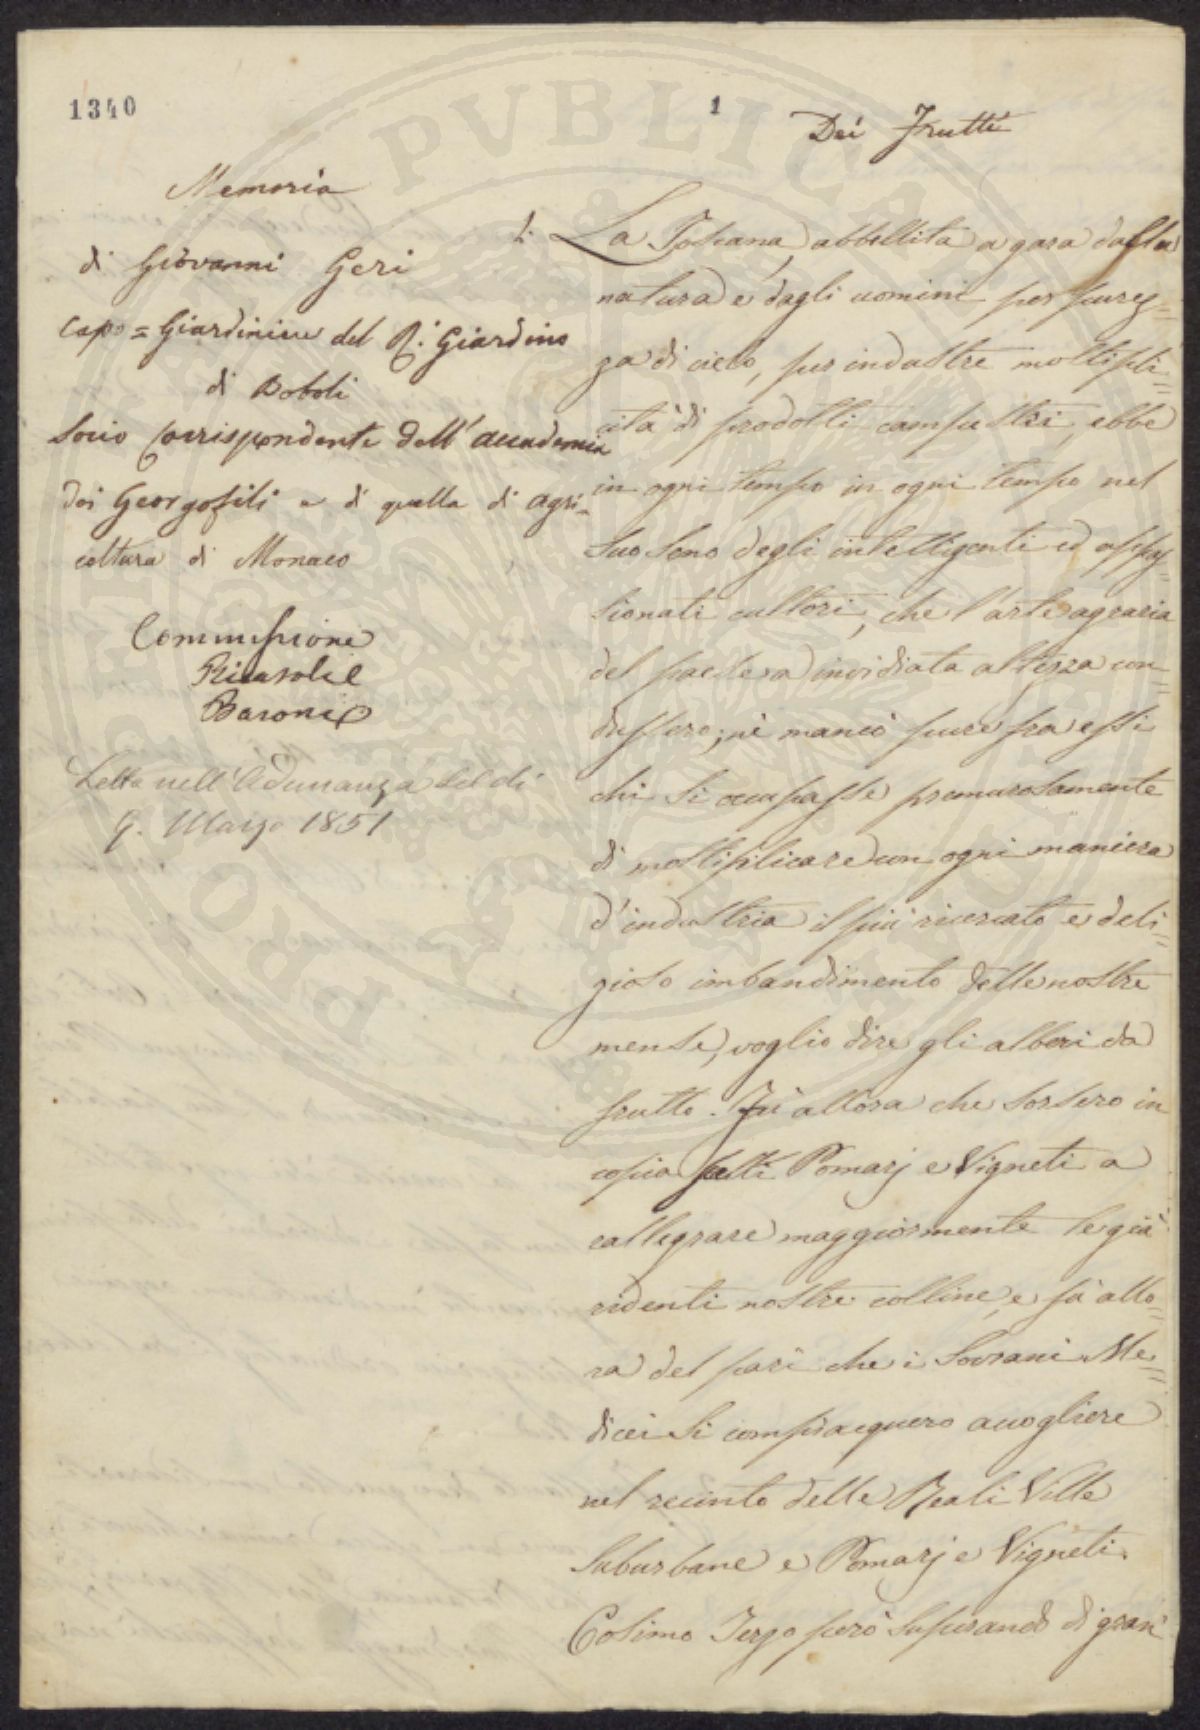 1340
1
Dei Frutti
Memoria
di Giovanni Geri
Capo = Giardiniere del R. Giardino
di Boboli
Socio Corrispondente dell'Accademia
dei Georgofili e di quella di Agri=
coltura di Monaco
Commissione
Ricasoli e
Baroni
Letta nell'Adunanza del dì
9. Marzo 1851
La Toscana, abbellita a gara dalla
natura e dagli uomini per purez=
za di cielo, per industre moltipli=
cità di prodotti campestri, ebbe
in ogni tempo in ogni tempo nel
suo seno degli intelligenti ed appas=
sionati cultori, che l'arte agraria
del paese a invidiata altezza con=
dussero; nè mancò pure fra essi
chi si occupasse premurosamente
di moltiplicare con ogni maniera
d'industria il più ricercato e deli=
zioso imbandimento delle nostre
mense, voglio dire gli alberi da
frutto. Fu allora che sorsero in
copia scelti Pomarj e Vigneti a
rallegrare maggiormente le già
ridenti nostre colline, e fu allo=
ra del pari che i Sovrani Me=
dicei si compiacquero accogliere
nel recinto delle Reali Ville
Suburbane e Pomarj e Vigneti.
Cosimo Terzo però superando di gran
PVBLICAE